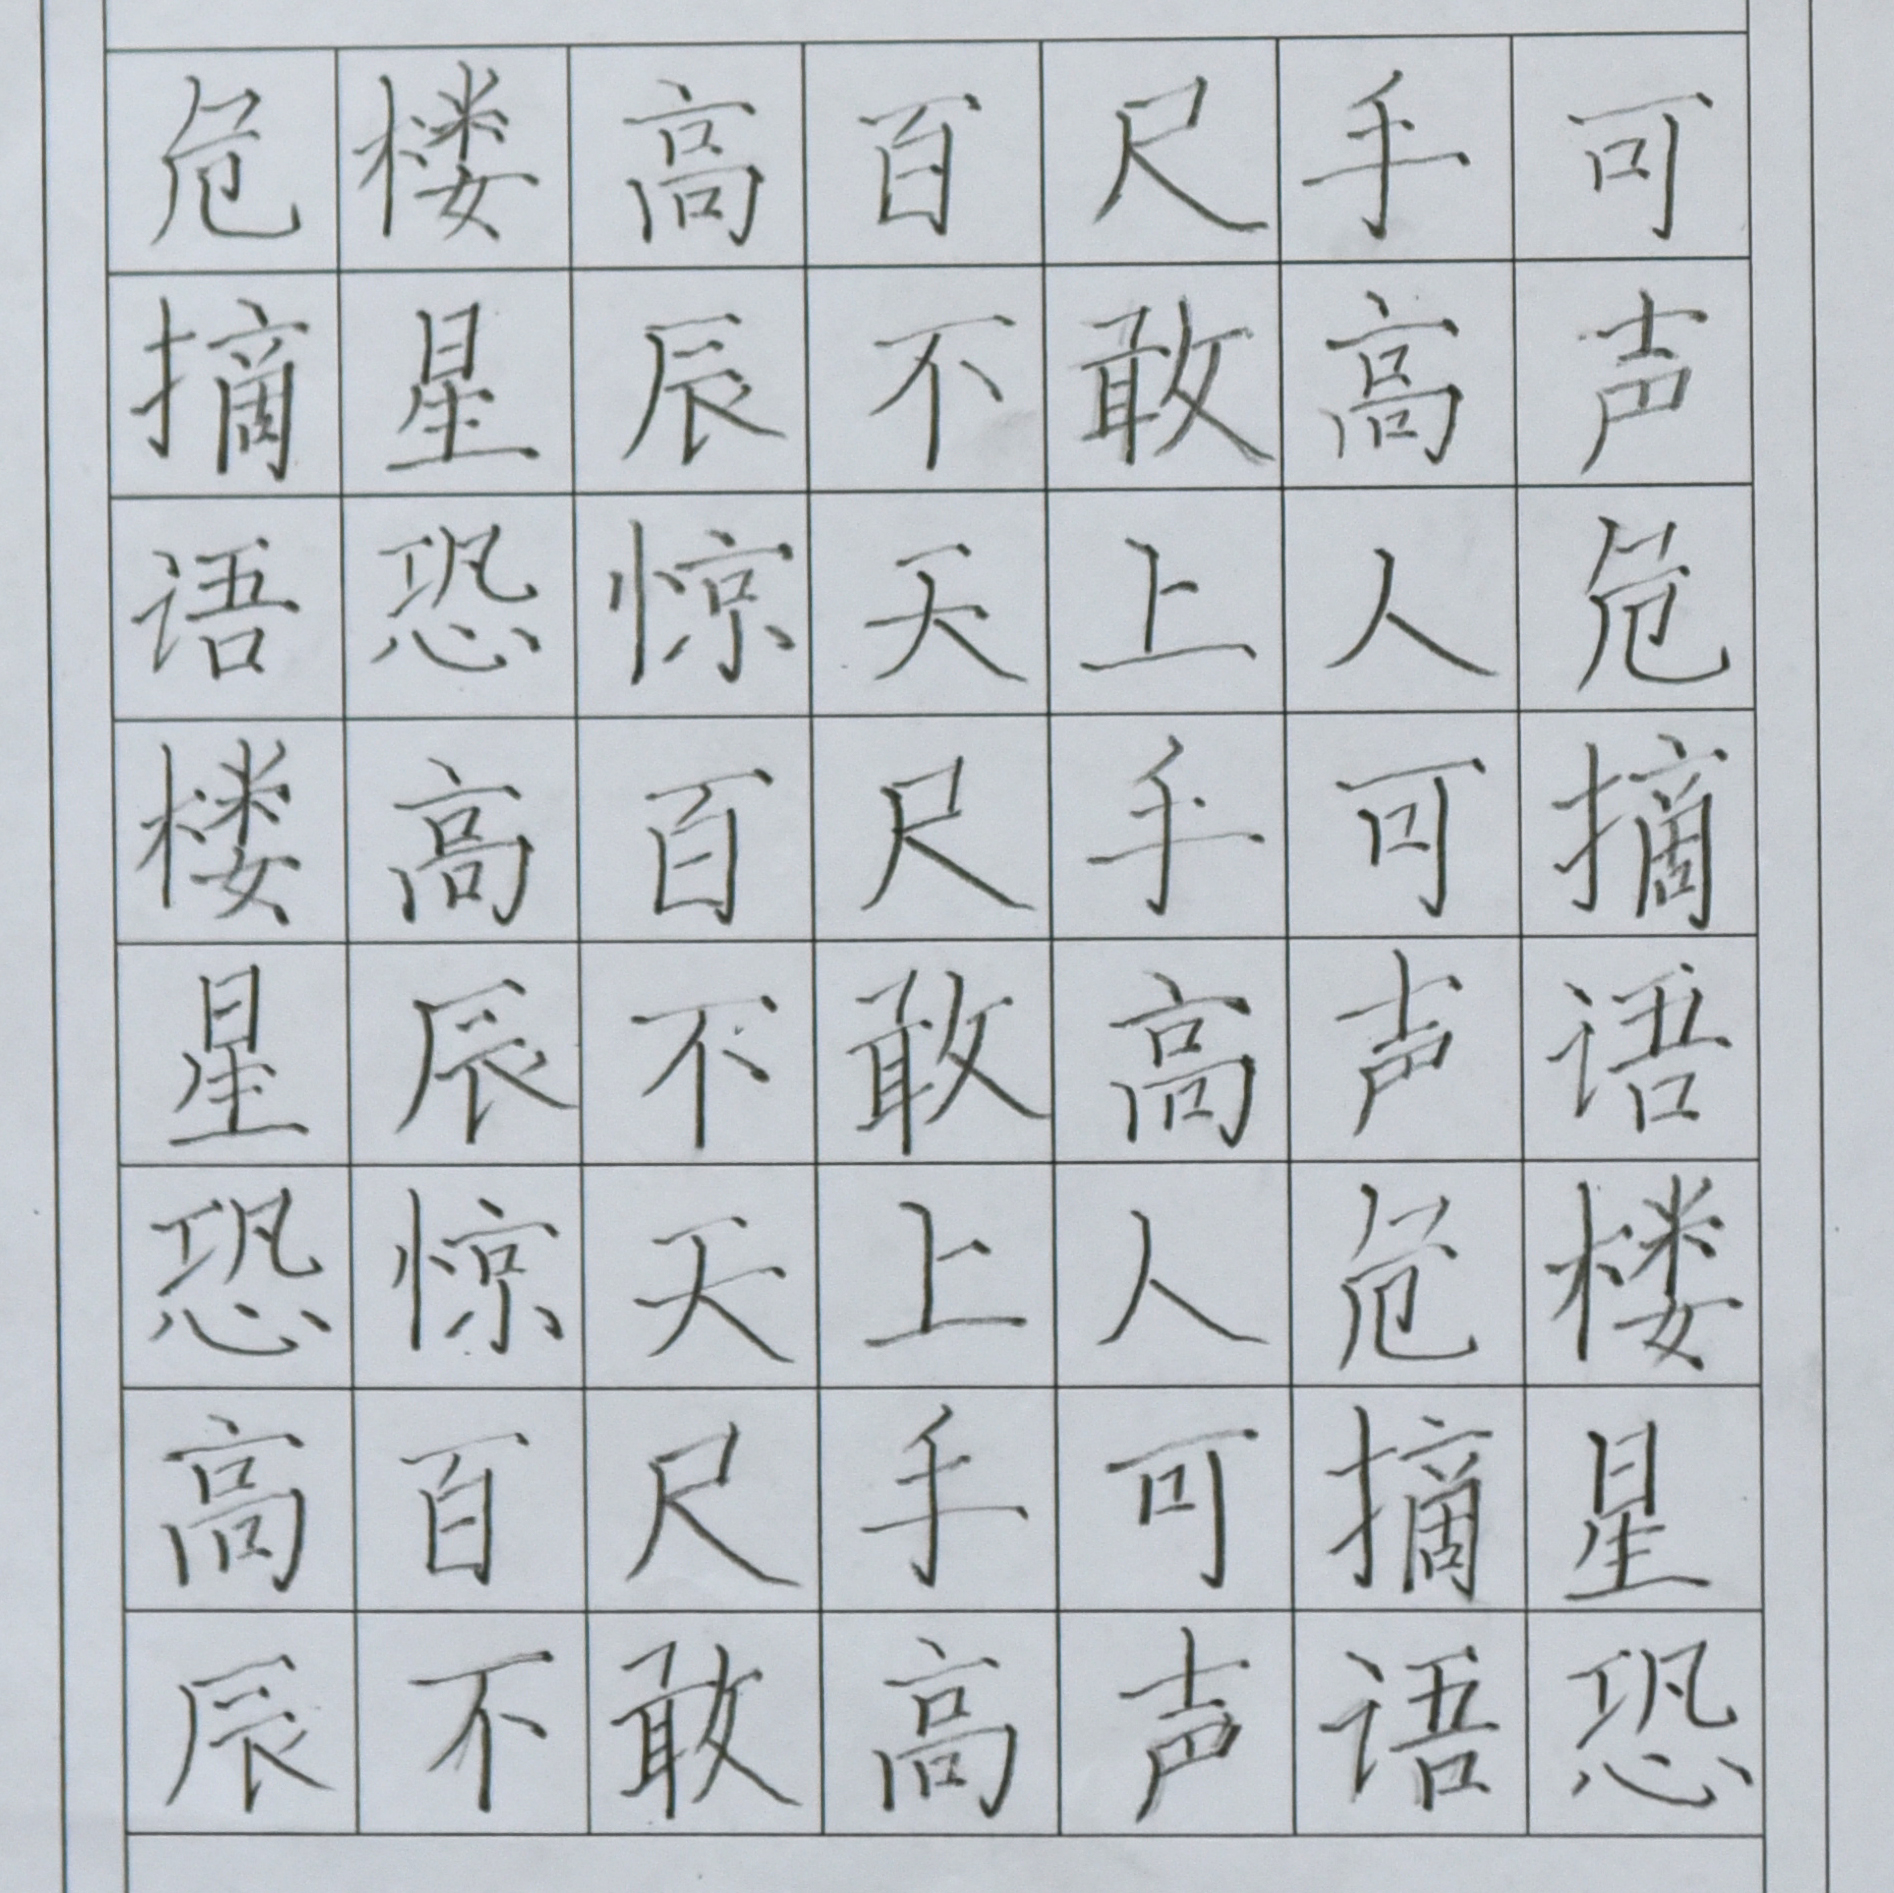 危楼高百尺手可
摘星辰不敢高声
语恐惊天上人危
楼高百尺手可摘
星辰不敢高声语
恐惊天上人危楼
高百尺手可摘星
辰不敢高声语恐